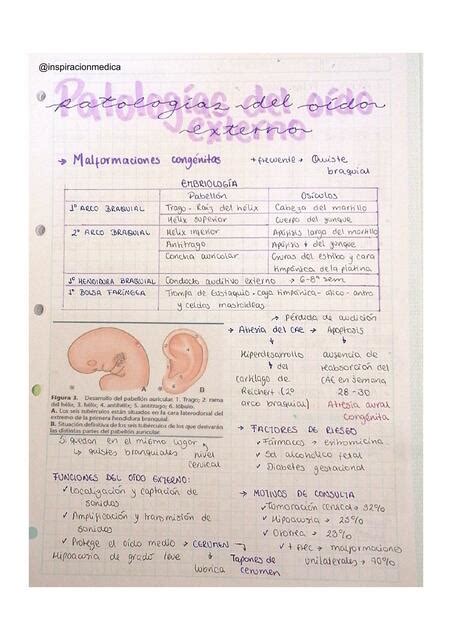 @inspiracionmedica
Patologías del oído
externo
→ Malformaciones congénitas
+ frecuente → Quiste
braquial
EMBRIOLOGÍA
Pabellón Osículos
1° ARCO BRAQUIAL Trago - Raíz del hélix Cabeza del martillo
Hélix superior Cuerpo del yunque
2° ARCO BRAQUIAL Hélix inferior Apófisis larga del martillo
Antitrago Apófisis + del yunque
Concha auricular Cruras del estribo y cara
timpánica de la platina
1° HENDIDURA BRAQUIAL Conducto auditivo externo → 6-8° sem
1° BOLSA FARÍNGEA Trompa de Eustaquio - caja timpánica - ático - antro
y celdas mastoideas
→ Pérdida de audición
→ Atresia del CAE → Apoptosis
Hiperdesarrollo
del
cartílago de
Reichert (2°
arco braquial)
ausencia de
reabsorción del
CAE en semana
28-30
Atresia aural
congénita
A
B
Figura 3. Desarrollo del pabellón auricular. 1. Trago; 2. rama
del hélix; 3. hélix; 4. antihélix; 5. antitrago; 6. lóbulo.
A. Los seis tubérculos están situados en la cara laterodorsal del
extremo de la primera hendidura branquial.
B. Situación definitiva de los seis tubérculos de los que derivarán
las distintas partes del pabellón auricular.
Si quedan en el mismo lugar
↳ quistes branquiales nivel
cervical
→ FACTORES DE RIESGO
✓ Fármacos → eritromicina
✓ Sd alcohólico fetal
✓ Diabetes gestacional
FUNCIONES DEL OÍDO EXTERNO:
✓ Localización y captación de
sonidos
✓ Amplificación y transmisión de
sonidos
✓ Protege el oído medio → CERUMEN
Hipoacusia de grado leve
Tapones de
cerumen
→ MOTIVOS DE CONSULTA
✓ Tumoración cervical → 32%
✓ Hipoacusia → 23%
✓ Otorrea → 23%
✓ + FREC → malformaciones
unilaterales → 70%